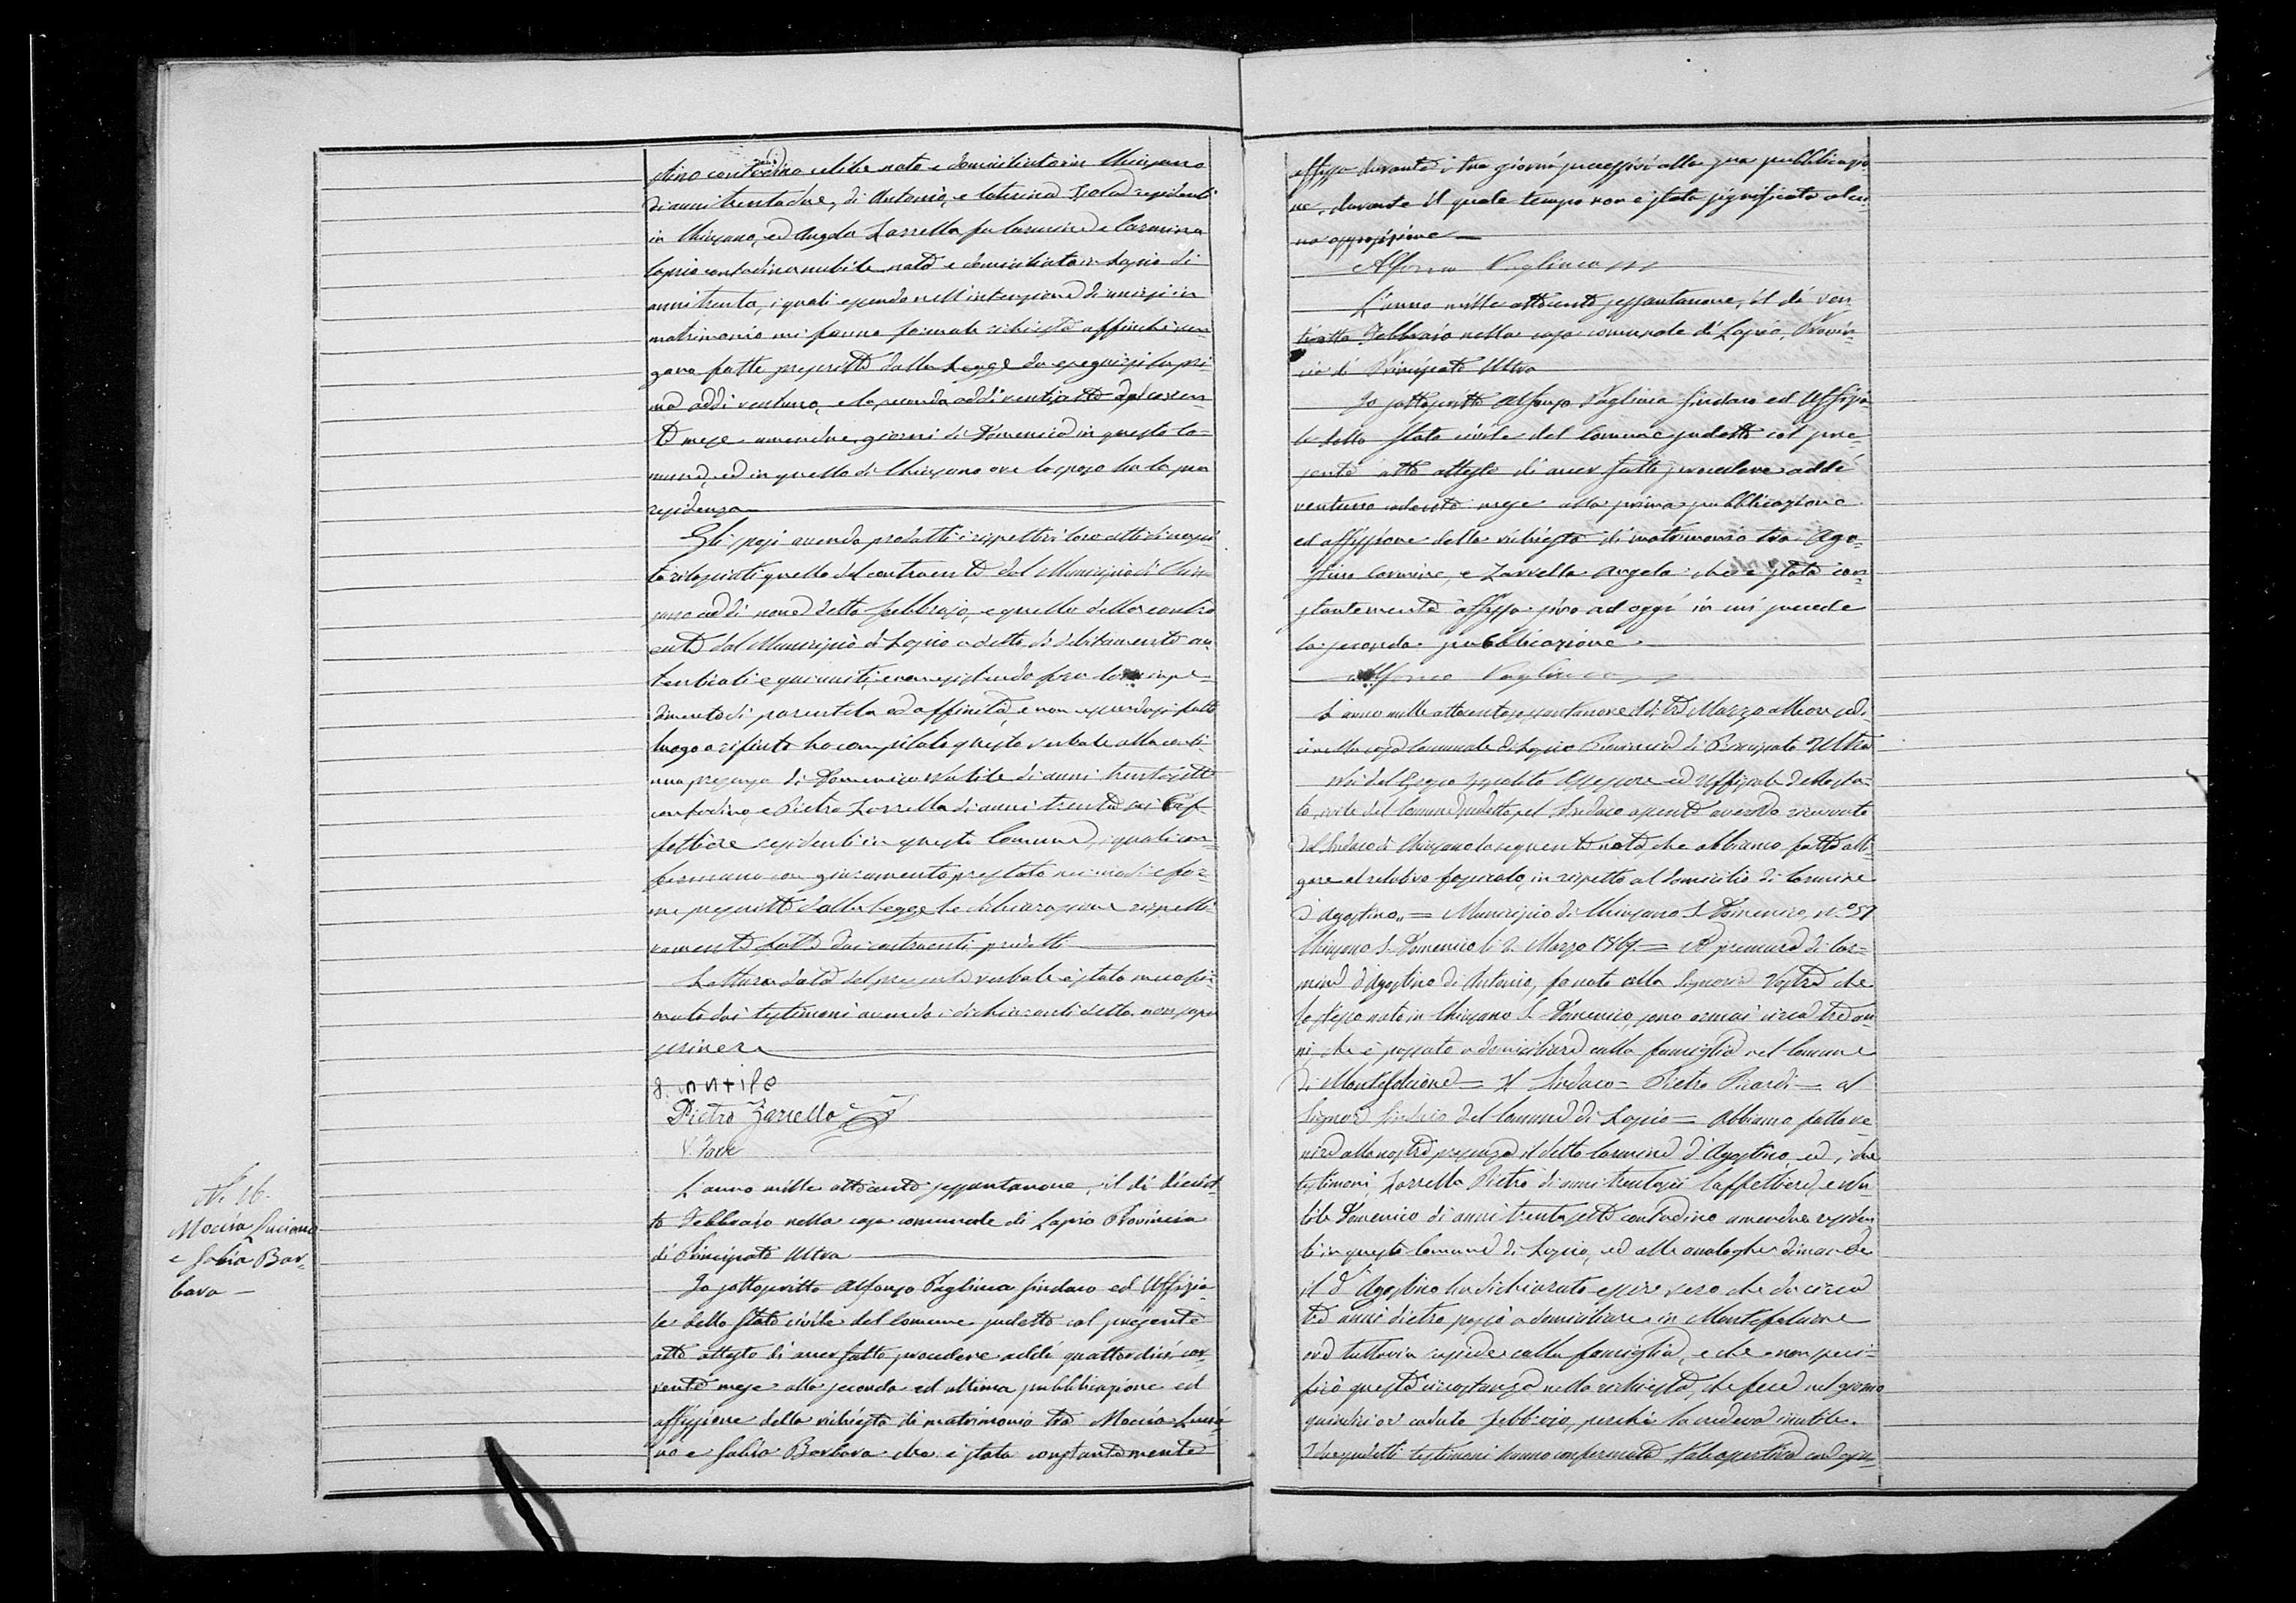 stino contadino celibe nato e domiciliato in Chiusano
di anni trentadue, di Antonio, e Caterina residenti
in Chiusano, ed Angela Zarrella fu Carmine e Carmina
Caprio contadina nubile nata e domiciliata in Lapio di
anni trenta, i quali essendo nell'intenzione di unirsi in
matrimonio mi fanno formale richiesta affinchè ven-
gano fatte prescritte dalla Legge da eseguirsi la pri
ma addi ventuno, e la seconda addi ventiotto del corren-
te mese amendue giorni di Domenica in questo Co-
mune, ed in quello di Chiusano ove lo sposo ha la sua
residenza
Gli sposi avendo prodotti i rispettivi loro atti di nasci-
ta rilasciati quello del contraente dal Municipio di Chiu-
sano addi nove detto febbrajo, e quello della contra
ente dal Municipio di Lapio a detto dì debitamente au-
tenticati e non esistendo fra loro impe-
dimento di parentela ed affinità, e non essendosi fatto
luogo a rifiuto ho compilato questo verbale alla conti-
nua presenza di Domenico Natile di anni trentasette
contadino, e Pietro Zarrella di anni trentasei Caf-
fettiere residenti in questo Comune, i quali con-
fermano con giuramento prestato nei modi e for-
me prescritte dalla Legge le dichiarazione rispetti-
vamente fatte dai contraenti predetti
Lettura data del presente verbale è stato meco fir-
mato dai testimoni avendo i dichiaranti detto non saper
scrivere
Pietro Zarrella
N. 16.
Moccia Luciano
e Sabia Bar-
bara
L'anno mille ottocento sessantanove, il di diciot-
to Febbraio nella casa comunale di Lapio Provincia
di Principato Ultra
Io sottoscritto Alfonso Paglinca Sindaco ed Uffizia-
le dello Stato civile del Comune sudetto col presente
atto attesto di aver fatto procedere addi quattordici cor-
rente mese alla seconda ed ultima pubblicazione ed
affissione della richiesta di matrimonio tra Moccia Lucia-
no e Sabia Barbara che è stata constantemente
affissa durante i tre giorni successivi alla sua pubblicazio-
ne, durante il quale tempo non è stata significata alcu-
na opposizione
Alfonso Paglinca
L'anno mille ottocento sessantanove, il dì ven-
tiotto Febbraio nella casa comunale di Lapio, Provin-
cia di Principato Ultra
Io sottoscritto Alfonso Paglinca Sindaco ed Uffizia-
le dello Stato civile del Comune sudetto col pre-
sente atto attesto di aver fatto procedere addi
ventuno cadente mese alla prima pubblicazione
ed affissione della richiesta di matrimonio tra Ago-
stino Carmine, e Zarrella Angela che è stata con-
stantemente affissa sino ad oggi in cui succede
la seconda pubblicazione
Alfonso Paglinca
L'anno mille ottocento sessantanove il di tre Marzo alle ore sedi-
ci nella casa Comunale di Lapio Provincia di Principato Ultra
Noi del Grezio Ippolito Assessore ed Uffiziale dello Sta-
to civile del Comune sudetto pel Sindaco assente avendo ricevuto
dal Sindaco di Chiusano la seguente nota, che abbiamo fatto alli-
gare al relativo fascicolo, in rispetto al domicilio di Carmine
d'Agostino,, = Municipio di Chiusano S. Domenico, N.° 57
Chiusano S. Domenico li 2. Marzo 1869. = A premura di Car-
mine d'Agostino di Antonio, fo noto alla Signoria Vostra che
lo stesso nato in Chiusano S. Domenico, sono ormai circa tre an-
ni, che è passato a domiciliare colla famiglia nel Comune
di Montefalcione = Il Sindaco = Pietro = Al
Signor Sindaco del Comune di Lapio = Abbiamo fatto ve-
nire alla nostra presenza il detto Carmine d'Agostino, ed i due
testimoni, Zarrella Pietro di anni trentasei Caffettiere, e Na-
tile Domenico di anni trentasette contadino amendue residen-
ti in questo Comune di Lapio, ed alle analoghe dimande
il d'Agostino ha dichiarato esser vero che da circa
tre anni dietro passò a domiciliare in Montefalcione
ove tuttavia risiede colla famiglia, e che non speci-
ficò questa circostanza nella richiesta, che fece nel giorno
quindici or caduto febbrajo, perchè la credeva inutile.
I due predetti testimoni hanno confermata,